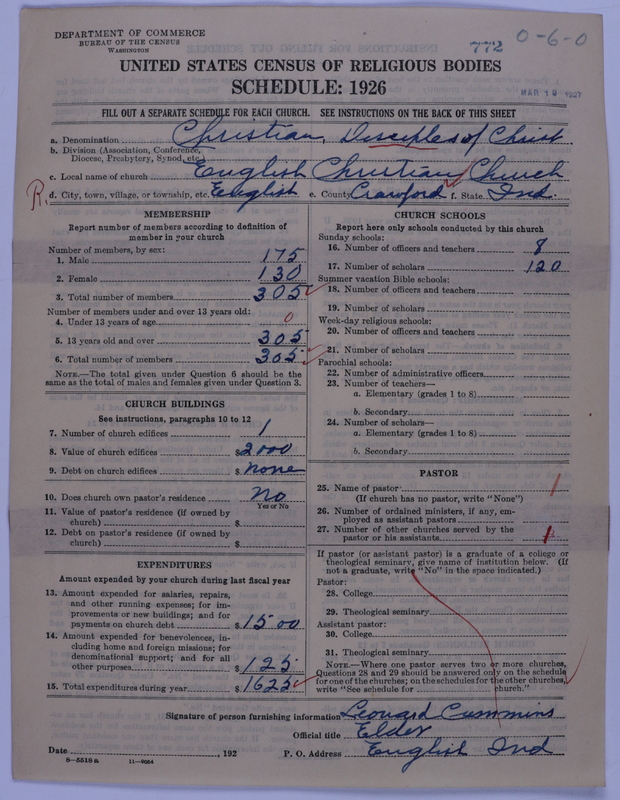 DEPARTMENT OF COMMERCE
BUREAU OF THE CENSUS
WASHINGTON
772
0-6-0
UNITED STATES CENSUS OF RELIGIOUS BODIES
SCHEDULE: 1926
MAR 12 1927
FILL OUT A SEPARATE SCHEDULE FOR EACH CHURCH. SEE INSTRUCTIONS ON THE BACK OF THIS SHEET
a. Denomination Christian, Disciples of Christ
b. Division (Association, Conference, Diocese, Presbytery, Synod, etc.
c. Local name of church English Christian Church
R. d. City, town, village, or township, etc. English e. County Crawford f. State Ind
MEMBERSHIP
Report number of members according to definition of member in your church
Number of members, by sex:
1. Male 175
2. Female 130
3. Total number of members 305
Number of members under and over 13 years old:
4. Under 13 years of age 0
5. 13 years old and over 305
6. Total number of members 305
NOTE.—The total given under Question 6 should be the same as the total of males and females given under Question 3.
CHURCH BUILDINGS
See instructions, paragraphs 10 to 12
7. Number of church edifices 1
8. Value of church edifices $2000
9. Debt on church edifices $none
10. Does church own pastor's residence No
Yes or No
11. Value of pastor's residence (if owned by church) $
12. Debt on pastor's residence (if owned by church) $
EXPENDITURES
Amount expended by your church during last fiscal year
13. Amount expended for salaries, repairs, and other running expenses; for improvements or new buildings; and for payments on church debt $1500
14. Amount expended for benevolences, including home and foreign missions; for denominational support; and for all other purposes $125
15. Total expenditures during year $1625
CHURCH SCHOOLS
Report here only schools conducted by this church
Sunday schools:
16. Number of officers and teachers 8
17. Number of scholars 120
Summer vacation Bible schools:
18. Number of officers and teachers
19. Number of scholars
Week-day religious schools:
20. Number of officers and teachers
21. Number of scholars
Parochial schools:
22. Number of administrative officers
23. Number of teachers—
a. Elementary (grades 1 to 8)
b. Secondary
24. Number of scholars—
a. Elementary (grades 1 to 8)
b. Secondary
PASTOR
25. Name of pastor 1
(If church has no pastor, write "None")
26. Number of ordained ministers, if any, employed as assistant pastors
27. Number of other churches served by the pastor or his assistants 1
If pastor (or assistant pastor) is a graduate of a college or theological seminary, give name of institution below. (If not a graduate, write "No" in the space indicated.)
Pastor:
28. College
29. Theological seminary
Assistant pastor:
30. College
31. Theological seminary
NOTE.—Where one pastor serves two or more churches, Questions 28 and 29 should be answered only on the schedule for one of the churches; on the schedules for the other churches, write "See schedule for church."
Signature of person furnishing information Leonard Cummins
Official title Elder
Date , 192 P. O. Address English Ind
8—5518a 11—9024